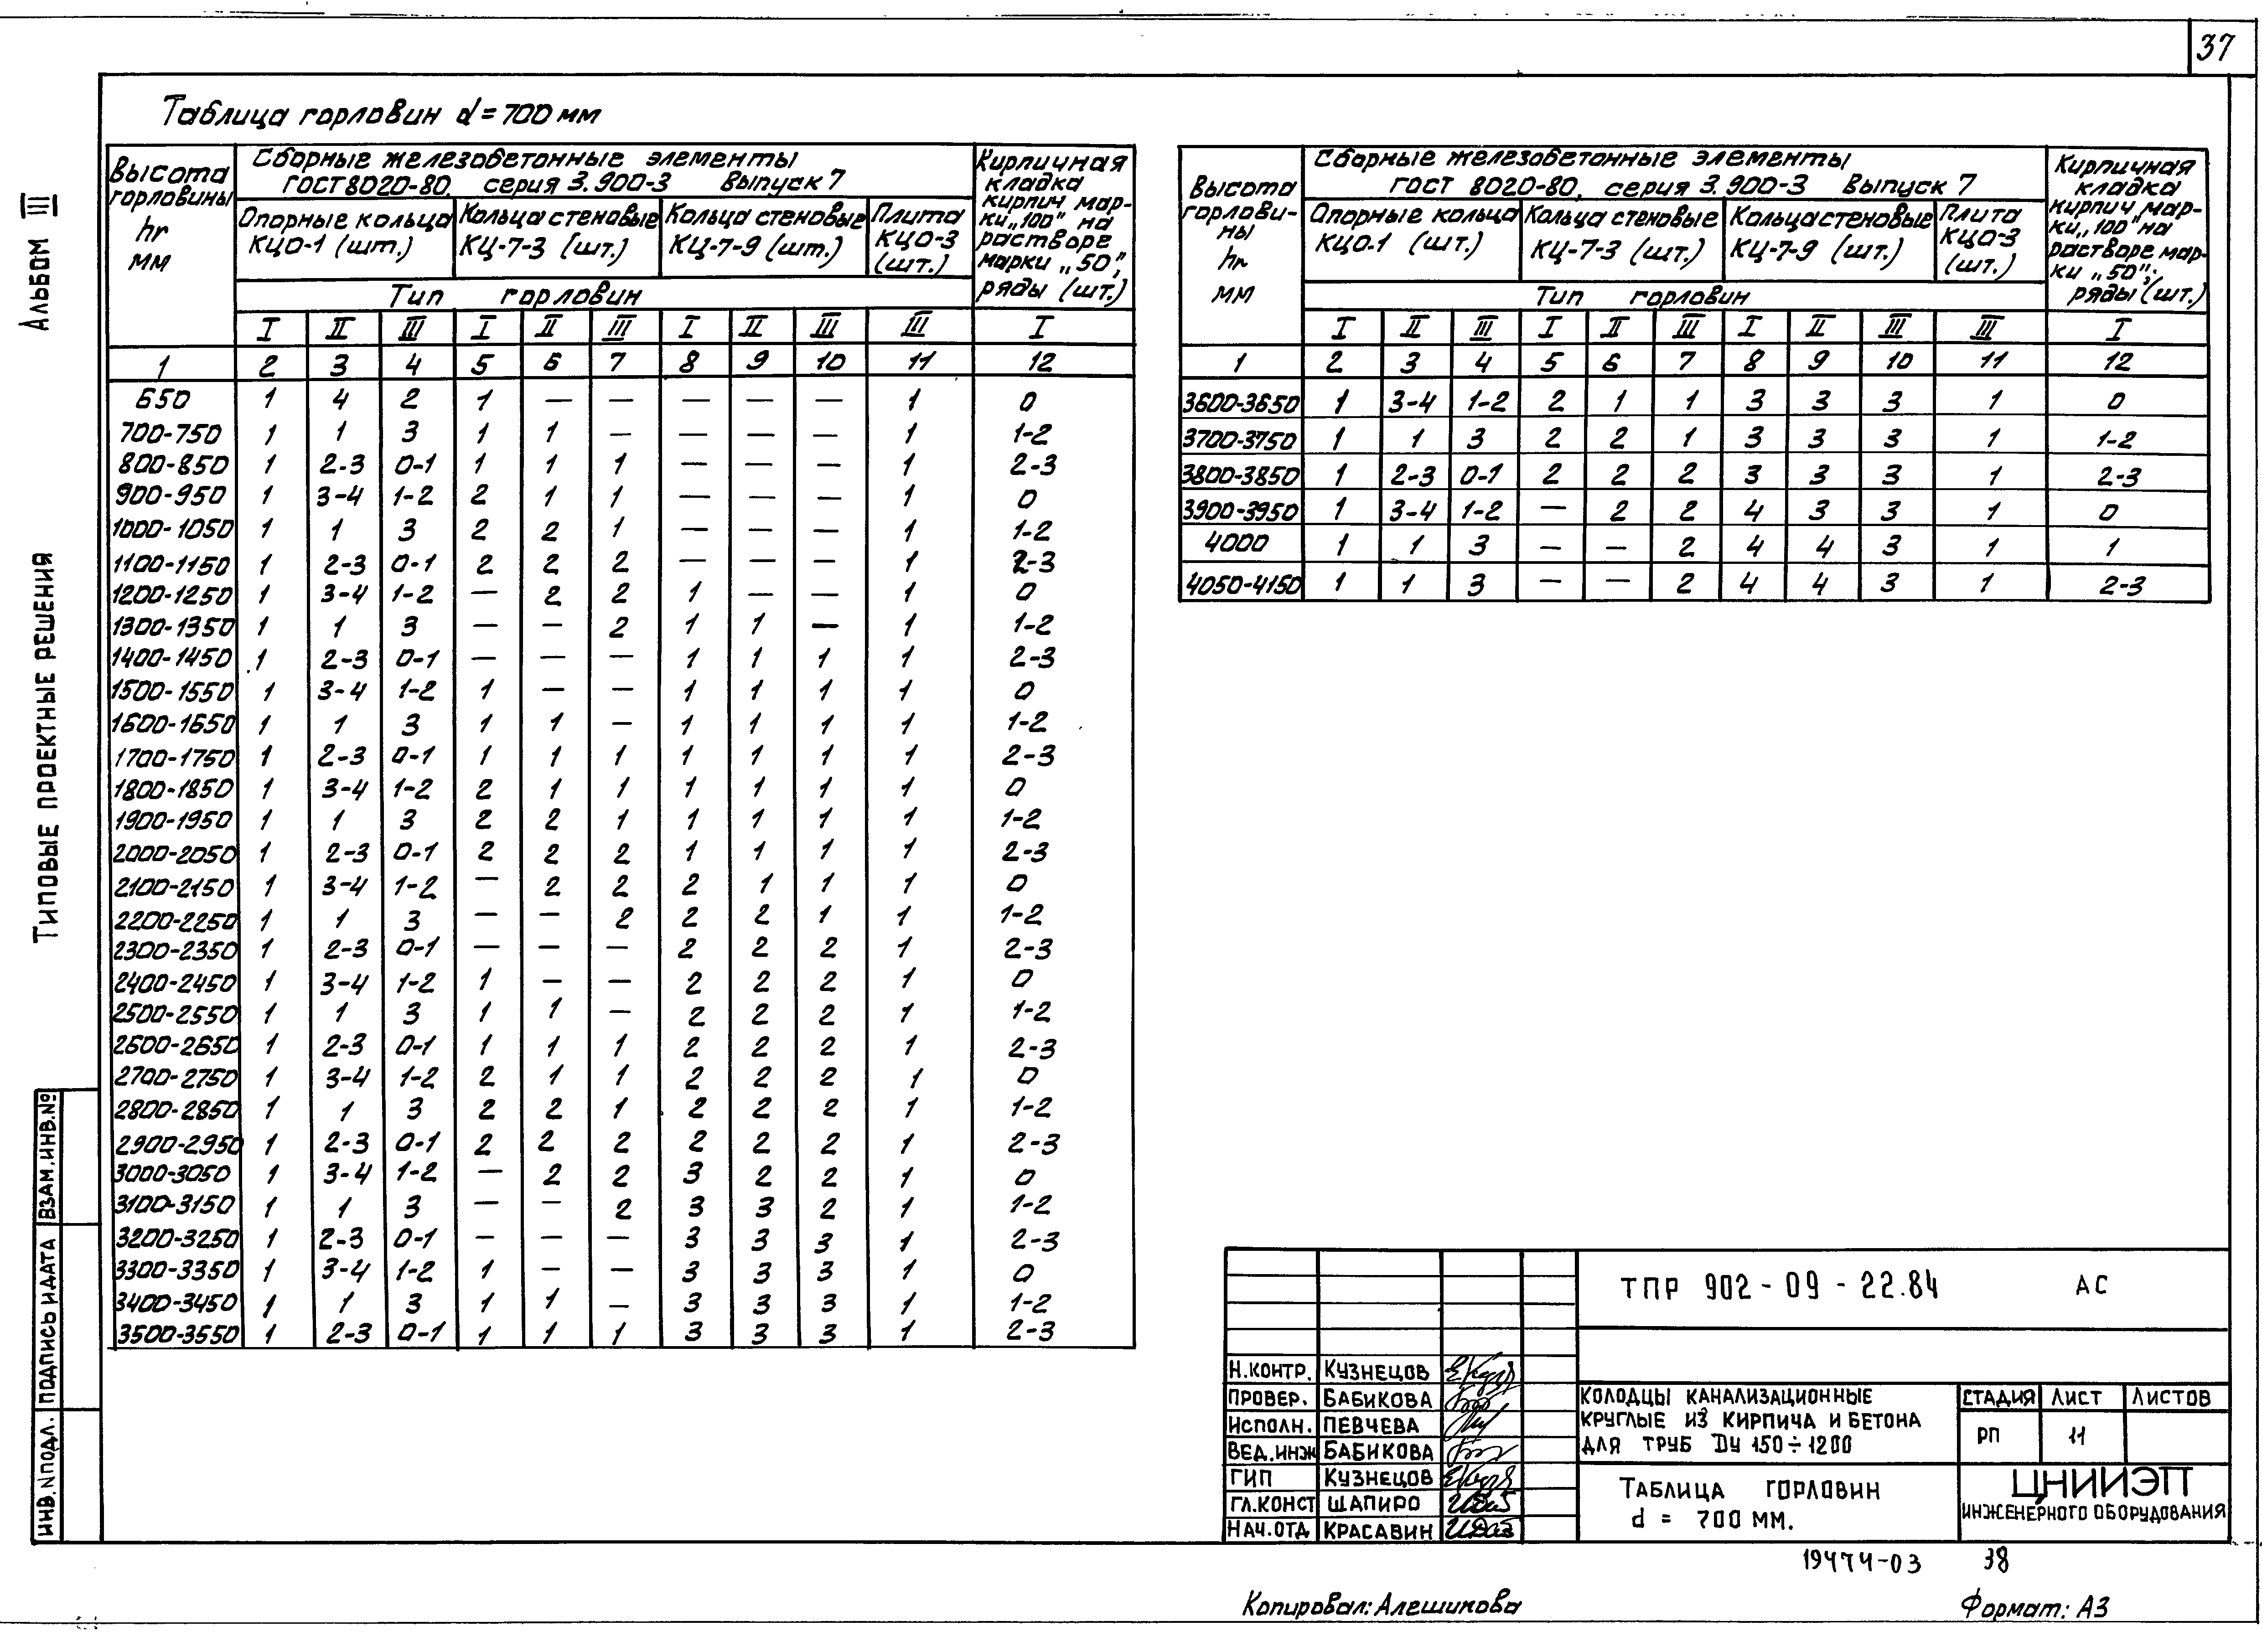 37
Таблица горловин d=700 мм
Альбом III
Типовые проектные решения
Взам.инв.№
Подпись и дата
Инв.N подл.
Высота горловины hг мм
Сборные железобетонные элементы
ГОСТ 8020-80, серия 3.900-3 Выпуск 7
Опорные кольца КЦО-1 (шт.)
Кольца стеновые КЦ-7-3 (шт.)
Кольца стеновые КЦ-7-9 (шт.)
Плита КЦО-3 (шт.)
Кирпичная кладка кирпич марки „100" на растворе марки „50", ряды (шт.)
Тип горловин
I II III I II III I II III III I
1 2 3 4 5 6 7 8 9 10 11 12
650 1 4 2 1 — — — — — 1 0
700-750 1 1 3 1 1 — — — — 1 1-2
800-850 1 2-3 0-1 1 1 1 — — — 1 2-3
900-950 1 3-4 1-2 2 1 1 — — — 1 0
1000-1050 1 1 3 2 2 1 — — — 1 1-2
1100-1150 1 2-3 0-1 2 2 2 — — — 1 2-3
1200-1250 1 3-4 1-2 — 2 2 1 — — 1 0
1300-1350 1 1 3 — — 2 1 1 — 1 1-2
1400-1450 1 2-3 0-1 — — — 1 1 1 1 2-3
1500-1550 1 3-4 1-2 1 — — 1 1 1 1 0
1600-1650 1 1 3 1 1 — 1 1 1 1 1-2
1700-1750 1 2-3 0-1 1 1 1 1 1 1 1 2-3
1800-1850 1 3-4 1-2 2 1 1 1 1 1 1 0
1900-1950 1 1 3 2 2 1 1 1 1 1 1-2
2000-2050 1 2-3 0-1 2 2 2 1 1 1 1 2-3
2100-2150 1 3-4 1-2 — 2 2 2 1 1 1 0
2200-2250 1 1 3 — — 2 2 2 1 1 1-2
2300-2350 1 2-3 0-1 — — — 2 2 2 1 2-3
2400-2450 1 3-4 1-2 1 — — 2 2 2 1 0
2500-2550 1 1 3 1 1 — 2 2 2 1 1-2
2600-2650 1 2-3 0-1 1 1 1 2 2 2 1 2-3
2700-2750 1 3-4 1-2 2 1 1 2 2 2 1 0
2800-2850 1 1 3 2 2 1 2 2 2 1 1-2
2900-2950 1 2-3 0-1 2 2 2 2 2 2 1 2-3
3000-3050 1 3-4 1-2 — 2 2 3 2 2 1 0
3100-3150 1 1 3 — — 2 3 3 2 1 1-2
3200-3250 1 2-3 0-1 — — — 3 3 3 1 2-3
3300-3350 1 3-4 1-2 1 — — 3 3 3 1 0
3400-3450 1 1 3 1 1 — 3 3 3 1 1-2
3500-3550 1 2-3 0-1 1 1 1 3 3 3 1 2-3
Высота горловины hг мм
Сборные железобетонные элементы
ГОСТ 8020-80, серия 3.900-3 Выпуск 7
Опорные кольца КЦО.1 (шт.)
Кольца стеновые КЦ-7-3 (шт.)
Кольца стеновые КЦ-7-9 (шт.)
Плита КЦО-3 (шт.)
Кирпичная кладка кирпич марки „100" на растворе марки „50", ряды (шт.)
Тип горловин
I II III I II III I II III III I
1 2 3 4 5 6 7 8 9 10 11 12
3600-3650 1 3-4 1-2 2 1 1 3 3 3 1 0
3700-3750 1 1 3 2 2 1 3 3 3 1 1-2
3800-3850 1 2-3 0-1 2 2 2 3 3 3 1 2-3
3900-3950 1 3-4 1-2 — 2 2 4 3 3 1 0
4000 1 1 3 — — 2 4 4 3 1 1
4050-4150 1 1 3 — — 2 4 4 3 1 2-3
ТПР 902-09-22.84 АС
Н.контр. Кузнецов
Провер. Бабикова
Исполн. Певчева
Вед.инж Бабикова
ГИП Кузнецов
Гл.конст Шапиро
Нач.отд Красавин
Колодцы канализационные
круглые из кирпича и бетона
для труб Dу 150÷1200
Стадия Лист Листов
РП 11
Таблица горловин
d = 700 мм.
ЦНИИЭП
инженерного оборудования
19474-03 38
Копировал: Алешикова
Формат: А3